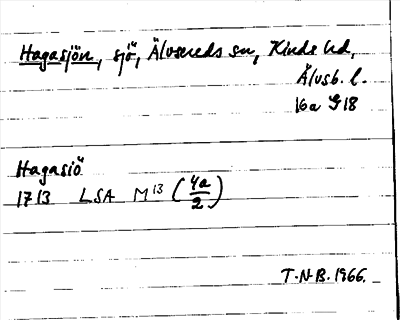 Hagasjön, sjö, Älvsereds sn, Kinds hd,
Älvsb. l.
16a 9 18
Hagasiö
1713 LSA M 13 (4a/2)
T.N-B. 1966.